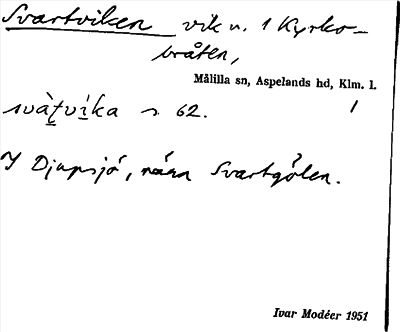 Svartviken vik u. 1 Kyrko-
bråten,
Målilla sn, Aspelands hd, Klm. l.
svàt̯vi̱ka s. 62. 1
I Djupsjö, nära Svartgölen.
Ivar Modéer 1951